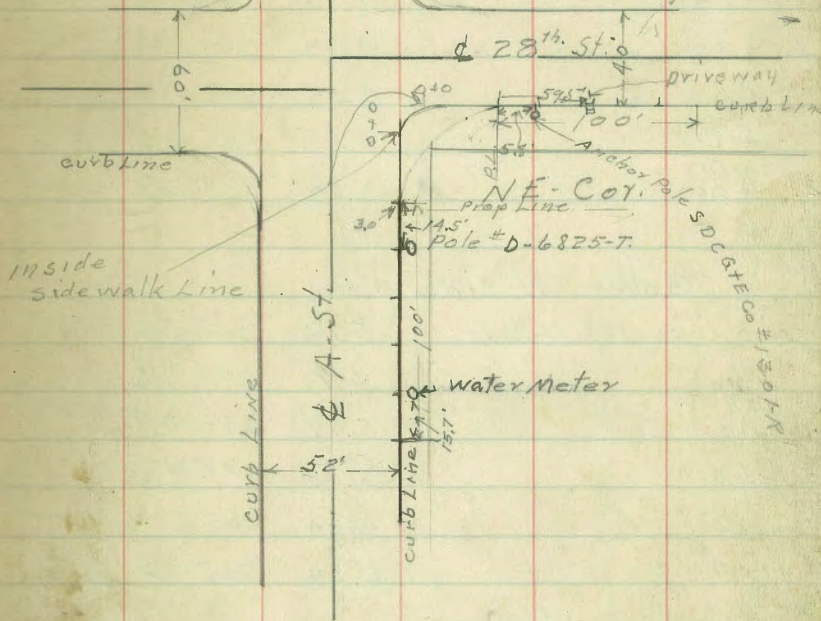 ℄ 28th. St.
60'
40
Driveway
0+0
59.5'
curb Line
100'
0+0
curb Line
5.8'
P.L.
Anchor Pole SDCG+ECo #1301-R
NE-Cor.
Prop Line
3.0
14.5'
Pole # D-6825-T.
Inside
Sidewalk Line
℄ A-St.
100'
Water Meter
15.7'
52'
curb Line
curb Line